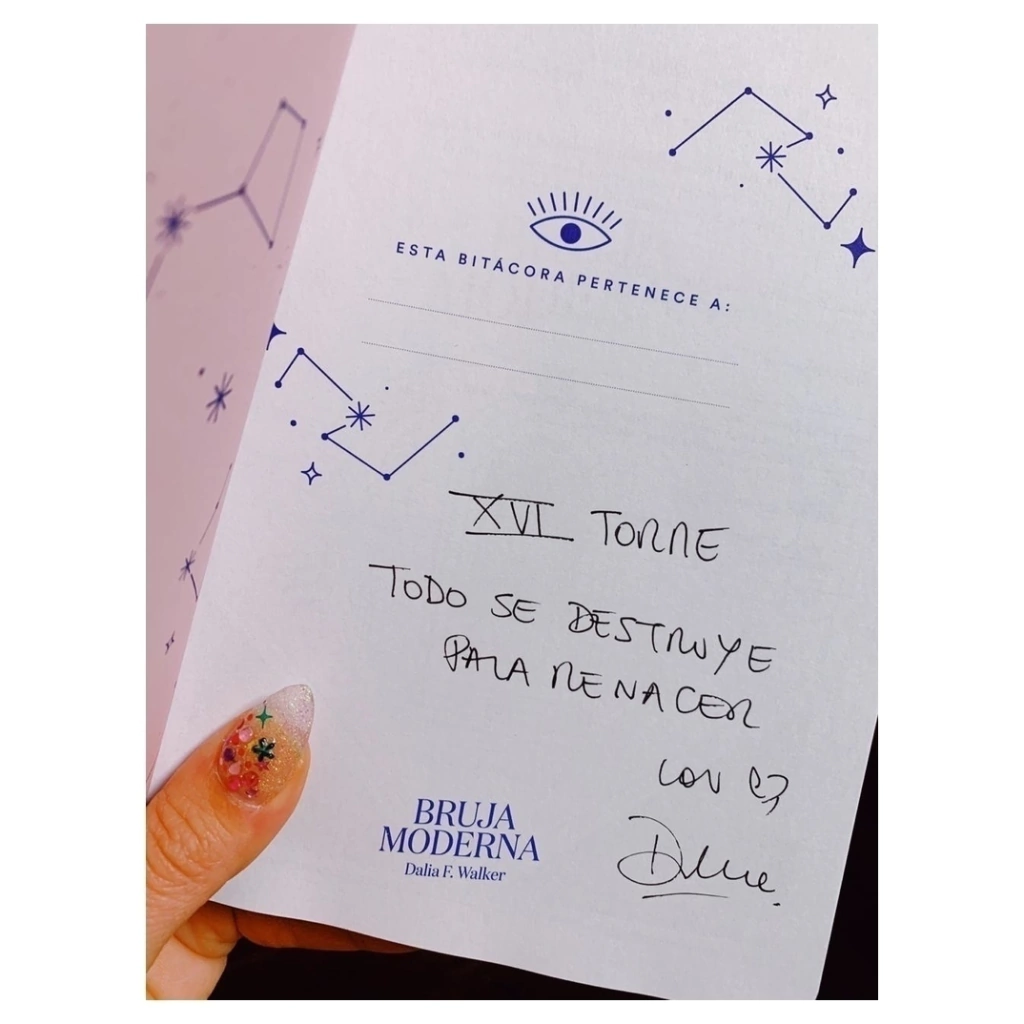 ESTA BITÁCORA PERTENECE A:
XVI TORRE
TODO SE DESTRUYE
PARA RENACER
LOV
BRUJA
MODERNA
Dalia F. Walker